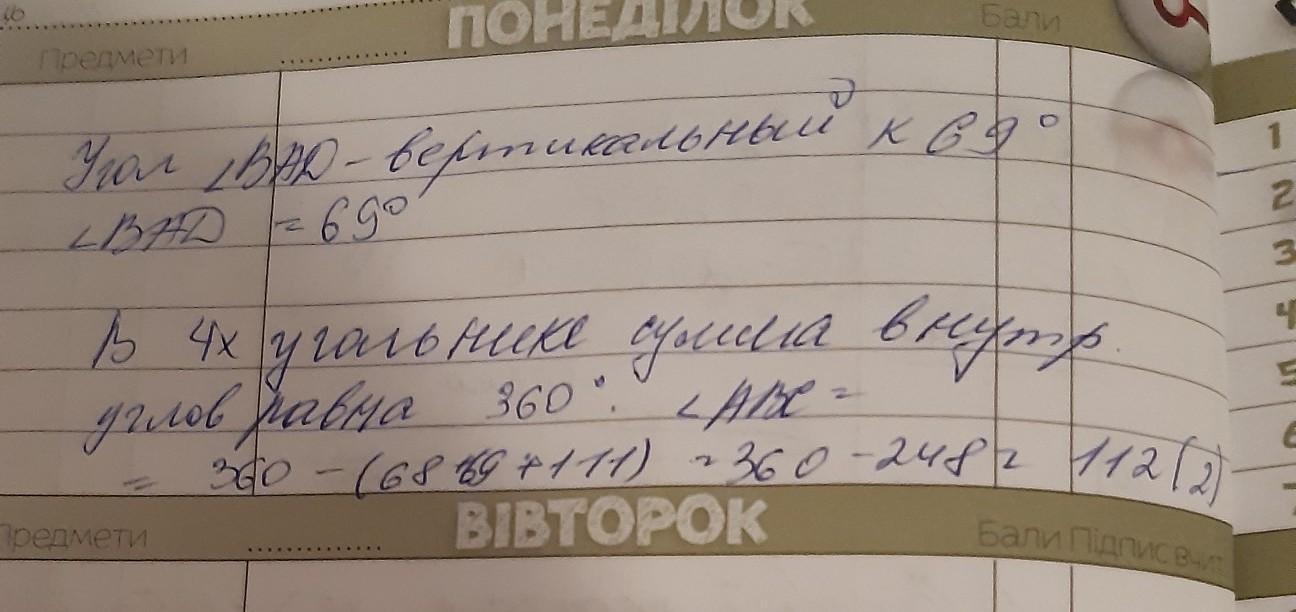 ПОНЕДІЛОК
Предмети
Бали
Угол ∠BAD - вертикальный к 69°
∠BAD = 69°
В 4х угольнике сумма внутр.
углов равна 360°. ∠ABC =
= 360 - (68+69+111) = 360 - 248 = 112 (2)
ВІВТОРОК
Предмети
Бали Підпис вчит
1
2
3
4
5
6
7